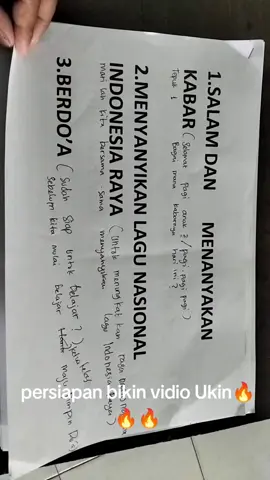 1.SALAM DAN MENANYAKAN
KABAR (Selamat pagi anak2 / pagi, pagi, pagi)
Tepuk 1
Bagai mana kabarnya hari ini?
2.MENYANYIKAN LAGU NASIONAL
INDONESIA RAYA (Untuk meningkatkan rasa
mari lah kita bersama sama menyanyikan lagu Indonesia
3.BERDO'A (Sudah siap untuk belajar?
Sebelum kita mulai belajar
persiapan bikin vidio Ukin🔥
🔥🔥